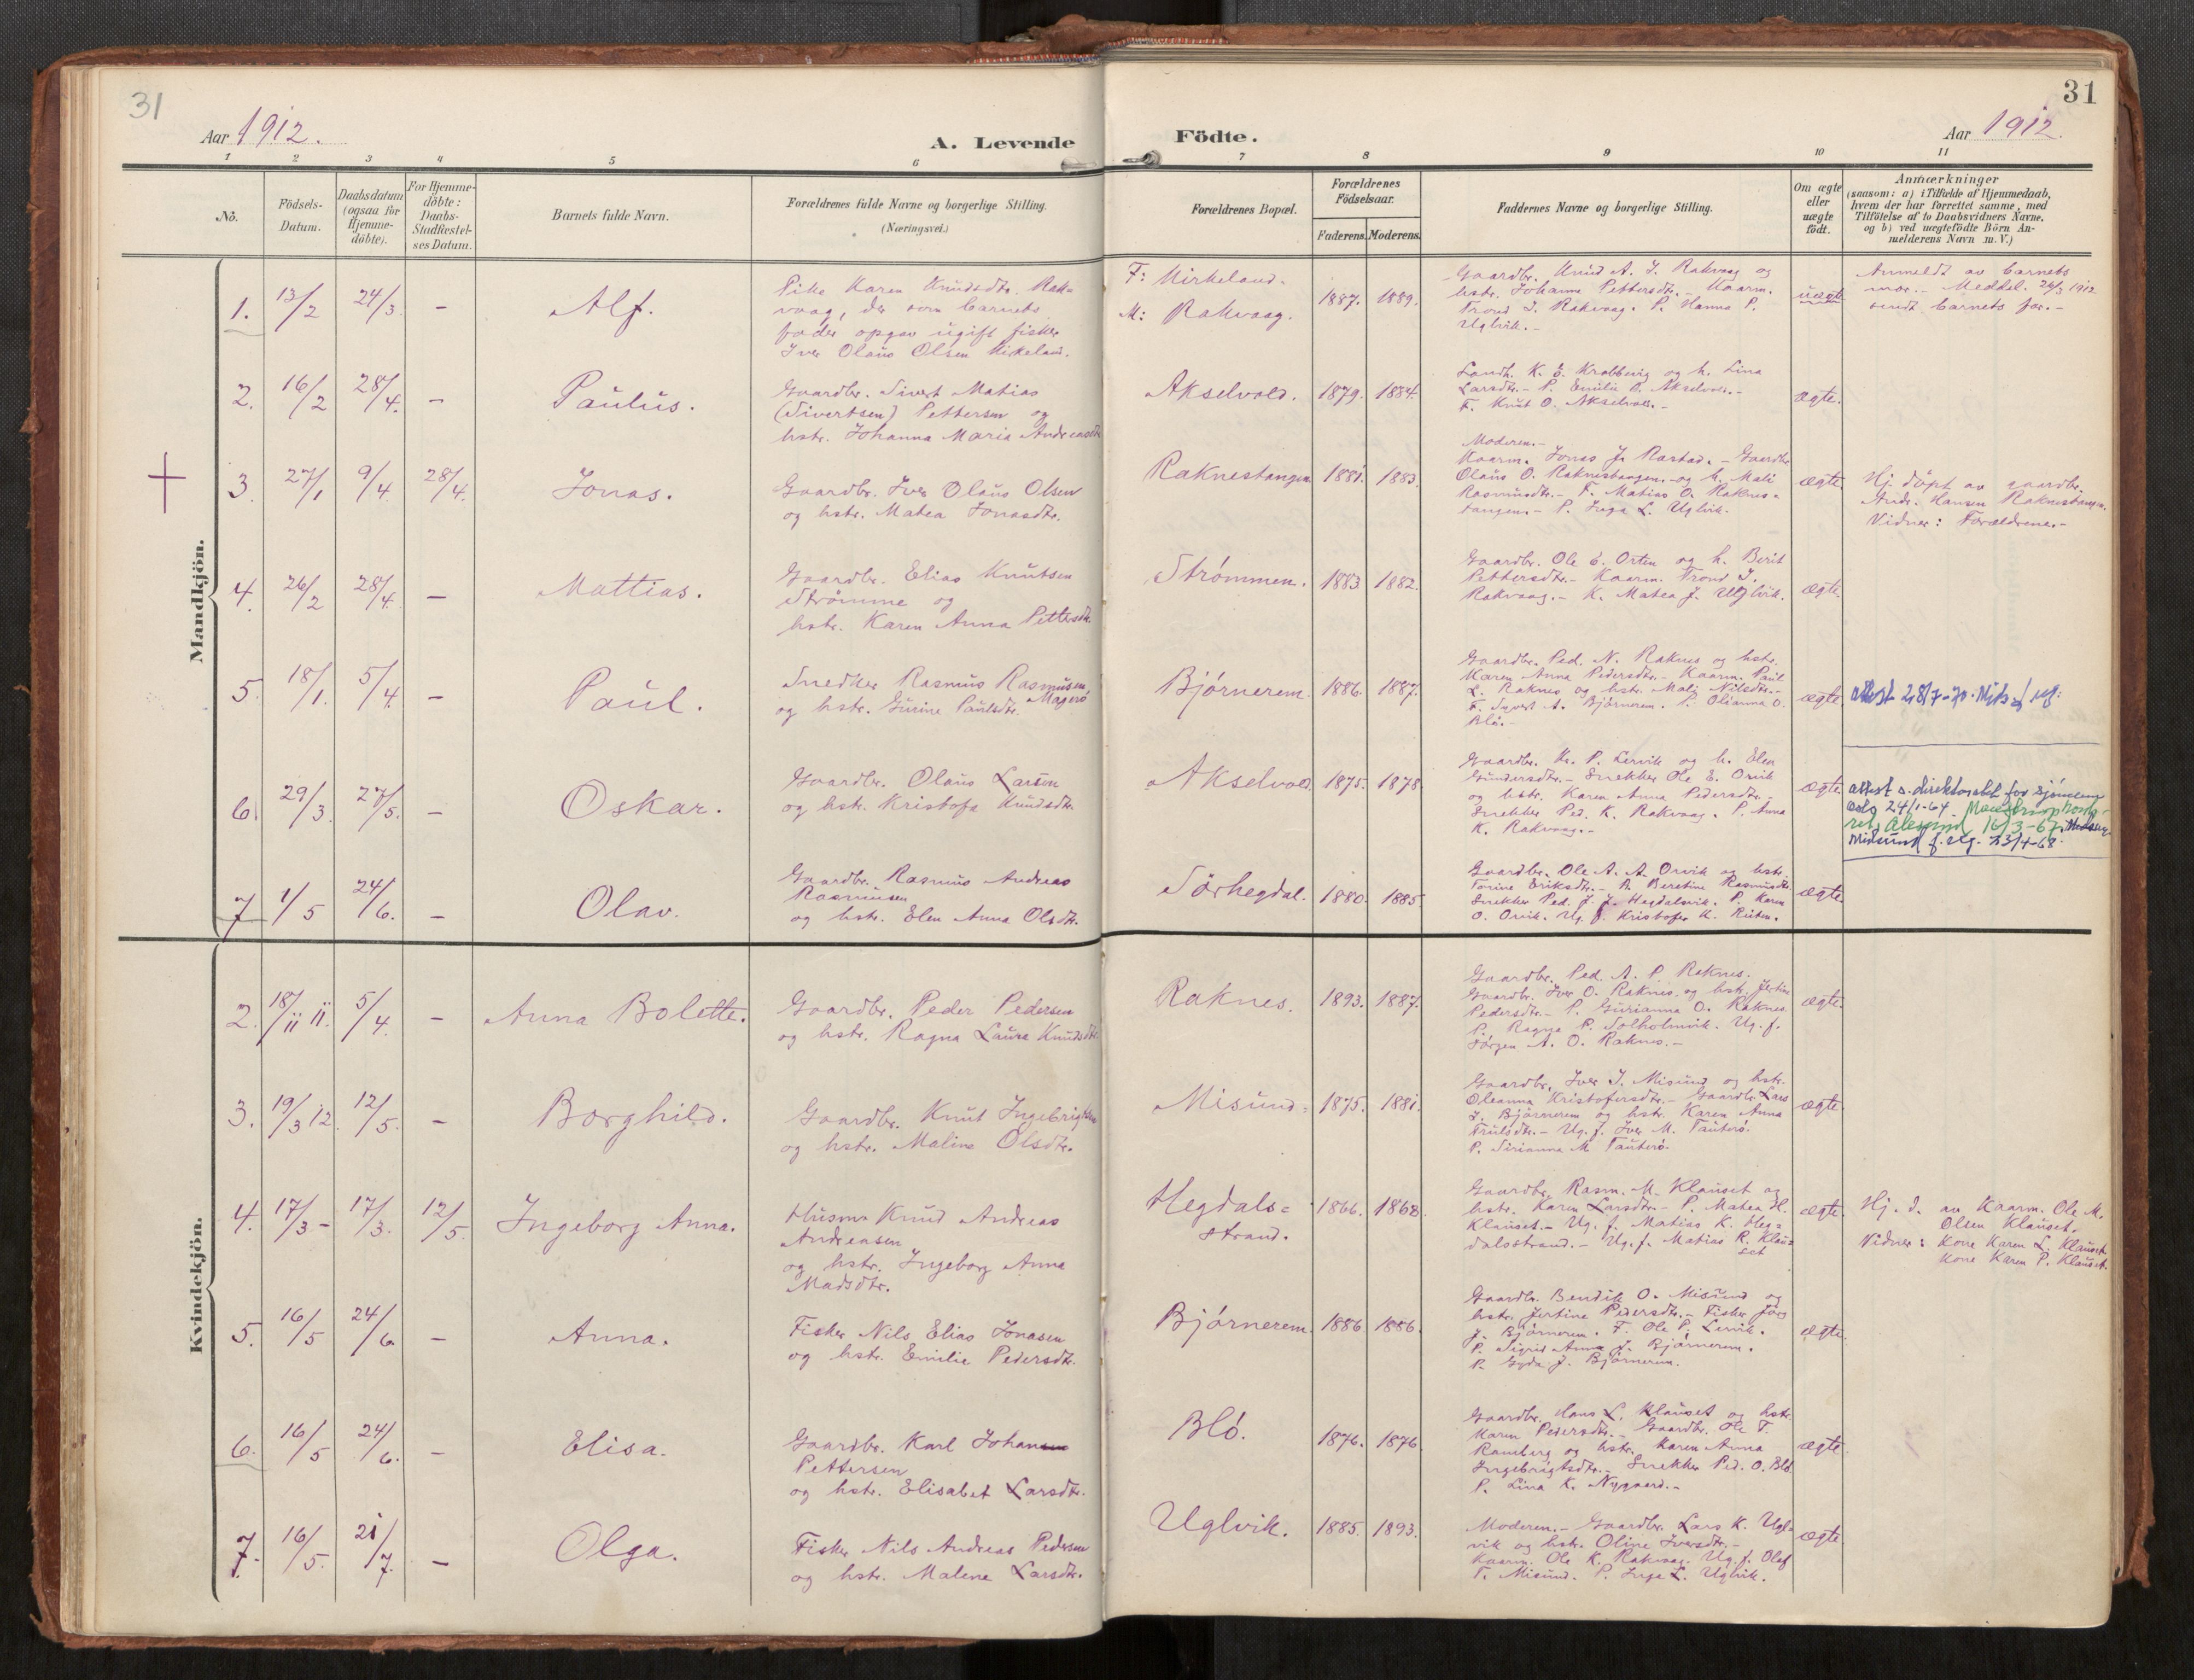 31
31
Aar 1912.
A. Levende
Födte.
Aar 1912.
1 2 3 4 5 6 7 8 9 10 11
No.
Födsels-
Datum.
Daabsdatum
(ogsaa for
Hjemme-
döbte).
For Hjemme-
döbte:
Daabs-
Stadfæstel-
ses Datum.
Barnets fulde Navn.
Forældrenes fulde Navne og borgerlige Stilling.
(Næringsvei.)
Forældrenes Bopæl.
Forældrenes
Födselsaar.
Faderens. Moderens.
Faddernes Navne og borgerlige Stilling.
Om ægte
eller
uægte
födt.
Anmærkninger
(saasom: a) i Tilfælde af Hjemmedaab,
hvem der har forrettet samme, med
Tilföielse af to Daabsvidners Navne.
og b) ved uægtefödte Börn An-
melderens Navn m. V.)
Mandkjön.
1. 13/2 24/3 - Alf.
Pike Karen Knudsdtr. Rak=
vaag, der som barnets
fader opgav ugift fisker
Iver Olaus Olsen
F:
M: Rakvaag.
1887. 1889.
Gaardbr. Knud A. I. Rakvaag og
hstr. Johanne Pettersdtr. - Kaarm.
Trond I. Rakvaag. P. Hanna P.
Uglvik. -
uægte
Anmeldt av barnets
mor. - Meddel. 24/3 1912
sendt barnets far. -
2. 16/2 28/4. - Paulus.
Gaardbr. Sivert Matias
(Sivertsen) Pettersen og
hstr. Johanna Maria Andreasdtr
Akselvold. 1879. 1884.
Landh. K. E. Krabbevig og h. Lina
Larsdtr. - P. Emilie A. Akselvold. -
F. Knut O. Akselvold. -
ægte.
3. 27/1 9/4 28/4. Jonas.
Gaardbr. Iver Olaus Olsen
og hstr. Matea Jonasdtr.
Raknestangen 1881. 1883.
Moderen. -
Kaarm. Jonas J. Rastad. - Gaardbr.
Olaus O. Raknestangen. og h. Mali
Rasmusdtr. - F. Matias O. Raknes=
tangen. - P. Inga L. Uglvik.
ægte.
Hj. döpt av gaardbr.
Andr. Hansen Raknestangen.
Vidner: Forældrene. -
4. 26/2 28/4. - Mattias.
Gaardbr. Elias Knutsen
Strömme og
hstr. Karen Anna Pettersdtr.
Strömmen. 1883 1882.
Gaardbr. Ole E. Orten og h. Berit
Pettersdtr. - Kaarm. Trond I.
Rakvaag. - K. Matea J. Uglvik.
ægte.
5. 18/1. 5/4. - Paul.
Snedker Rasmus Rasmusen
Magerö
og hstr. Gurine Paulsdtr.
Björnerem. 1886. 1887.
Gaardbr. Ped. N. Raknes og hstr.
Karen Anna Pedersdtr. - Kaarm. Paul
L. Raknes og hstr. Mali Nilsdtr. -
F. Syvert A. Björnerem. P. Olianna O.
Blö. -
ægte.
attest 28/7-70.
6. 29/3. 27/5. - Oskar.
Gaardbr. Olaus Larsen
og hstr. Kristofa Knudsdtr.
Akselvold 1875. 1878.
Gaardbr. Kr. P. Lervik og h. Elen
Gundersdtr. - Snekker Ole E. Orvik
og hstr. Karen Anna Pedersdtr. -
Snekker Ped. K. Rakvaag. P. Anna
K. Rakvaag. -
ægte.
attest s. direktoratet for sjömenn
Oslo 24/1-64.
Ålesund 16/3-67.
Midsund f. ulg. 23/4-68.
7. 1/5 24/6. - Olav.
Gaardbr. Rasmus Andreas
Rasmusen
og hstr. Elen Anna Olsdtr.
Sörhegdal. 1880. 1885
Gaardbr. Ole A. A. Orvik og hstr.
Torine Eriksdtr. - P. Beretine Rasmusdtr.
Snekker Ped. J. J. Hegdalsvik. P. Karen
O. Orvik. Ug. f. Kristofer K. Riiten.
ægte.
Kvindekjön.
2. 18/11 11. 5/4. - Anna Bolette.
Gaardbr. Peder Pedersen
og hstr. Ragna Laura Knudsdtr.
Raknes. 1893. 1887.
Gaardbr. Ped. A. P. Raknes.
Gaardbr. Iver O. Raknes og hstr. Jertine
Pedersdtr. - P. Gurianna O. Raknes.
P. Ragna P. Solholmvik. Ug. f.
Jörgen A. O. Raknes. -
ægte.
3. 19/3 12. 12/5. - Borghild.
Gaardbr. Knut Ingebrigtsen
og hstr. Malina Olsdtr.
Misund. 1875. 1881.
Gaardbr. Iver I. Misund og hstr.
Oleanna Kristofersdtr. - Gaardbr. Lars
J. Björnerem og hstr. Karen Anna
Trulsdtr. - Ug. f. Iver M. Tauterö.
P. Sirianna M. Tauterö.
ægte.
4. 17/3 - 17/3. 12/5. Ingeborg Anna.
Husm. Knud Andreas
Andreasen
og hstr. Ingeborg Anna
Madsdtr.
Hegdals=
strand.
1866. 1868
Gaardbr. Rasm. M. Klauset og
hstr. Karen Larsdtr. - P. Matea H.
Klauset. - Ug. f. Matias K. Heg=
dalsstrand. - Ug. f. Matias R. Klau=
set
ægte.
Hj. d. av Kaarm. Ole M.
Olsen Klauset.
Vidner: Kone Karen L. Klauset
Kone Karen P. Klauset.
5. 16/5 24/6 - Anna.
Fisker Nils Elias Jonasen
og hstr. Emilie Pedersdtr.
Björnerem. 1886 1886.
Gaardbr. Bendik O. Misund og
hstr. Jertine Pedersdtr. - Fisker Jörg
J. Björnerem. F. Ole P. Lervik.
P. Sigrid Anna J. Björnerem.
P. Gyda J. Björnerem.
ægte.
6. 16/5 24/6. - Elisa.
Gaardbr. Karl Johan
Pettersen
og hstr. Elisabet Larsdtr.
Blö. 1876. 1876.
Gaardbr. Hans L. Klauset og hstr.
Maren Pedersdtr. - Gaardbr. Ole T.
Ramberg og hstr. Karen Anna
Ingebrigtsdtr. - Snekker Ped. O. Blö.
P. Lina K. Nygaard. -
ægte.
7. 16/5. 21/7. - Olga.
Fisker Nils Andreas Pedersen
og hstr. Malene Larsdtr.
Uglvik. 1885. 1893.
Moderen. - Gaardbr. Lars K. Ugl=
vik og hstr. Oline Iversdtr. -
Kaarm. Ole K. Rakvaag. Ug. f. Olaf
T. Misund. P. Inga L. Uglvik.
ægte.